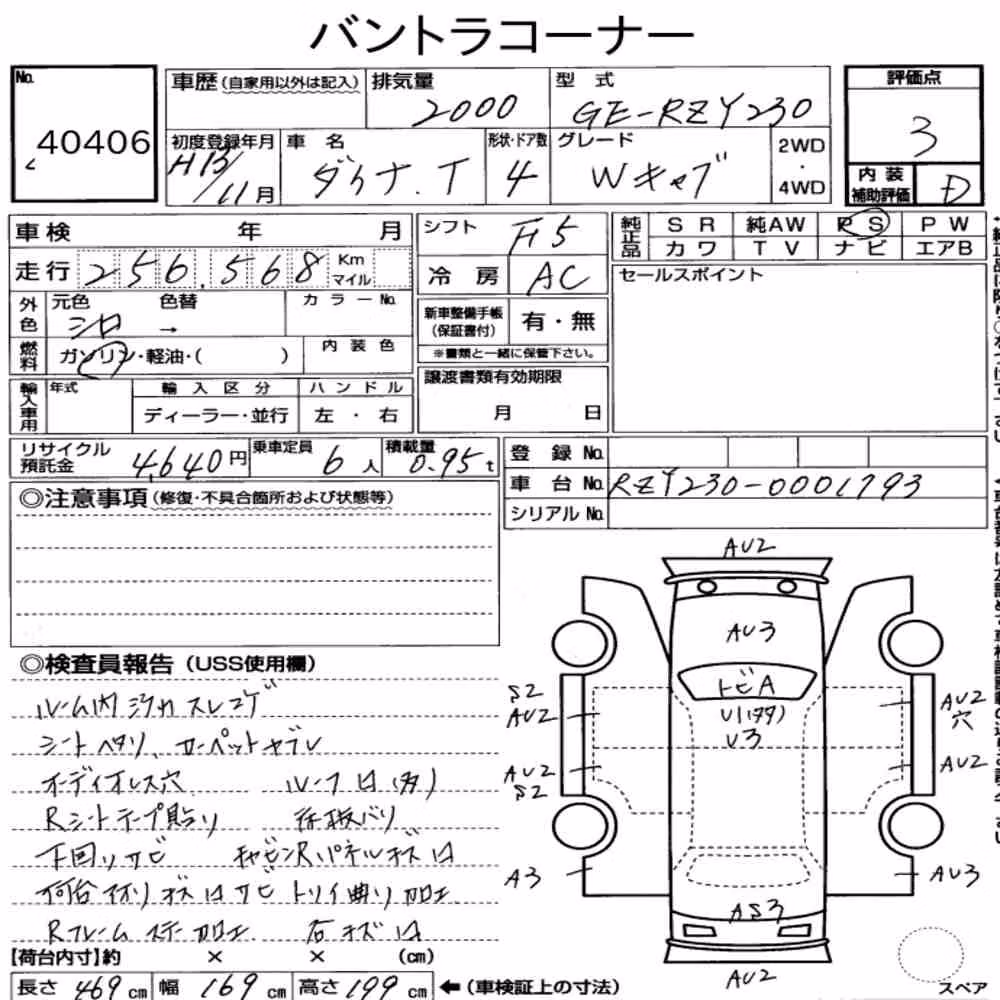 バントラコーナー
No. 40406
車歴 (自家用以外は記入) 排気量 2000 型式 GE-RZY230
評価点 3
初度登録年月 H13/11月 車名 ダイナ.T 形状・ドア数 4 グレード Wキャブ 2WD・4WD
内装補助評価 D
車検 年 月
走行 256,568 Km マイル
シフト F5
冷房 AC
純正品 SR 純AW PS PW
カワ TV ナビ エアB
セールスポイント
外色 元色 シロ 色替 → カラーNo.
新車整備手帳(保証書付) 有・無
※書類と一緒に保管下さい。
燃料 ガソリン・軽油・( ) 内装色
輸入車用 年式 輸入区分 ハンドル
ディーラー・並行 左・右
譲渡書類有効期限
月 日
リサイクル預託金 4,640円 乗車定員 6人 積載量 0.95t
登録No.
車台No. RZY230-0001793
シリアルNo.
◎注意事項 (修復・不具合箇所および状態等)
◎検査員報告 (USS使用欄)
ルーム内 スレコゲ
シートヘタリ カーペットヤブレ
オーディオレス穴 ルーフ凹(多)
Rシートテープ貼り
下回りサビ キャビンRパネルキズ凹
荷台 キズ凹サビ トリイ曲り加工
Rフレーム ステー加工 右キズ凹
【荷台内寸】約 × × (cm)
長さ 469cm 幅 169cm 高さ 199cm ←(車検証上の寸法)
AU2
AU3
トビA
U3
S2
AU2
AU2
穴
AU2
S2
AU2
A3
AU3
AS3
AU2
スペア